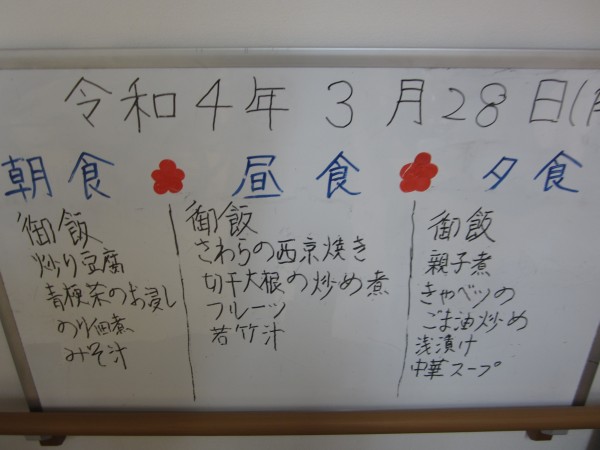 令和4年3月28日(月
朝食 昼食 夕食
御飯
炒り豆腐
青梗茶のお浸し
のり佃煮
みそ汁
御飯
さわらの西京焼き
切干大根の炒め煮
フルーツ
若竹汁
御飯
親子煮
きゃベツの
ごま油炒め
浅漬け
中華スープ